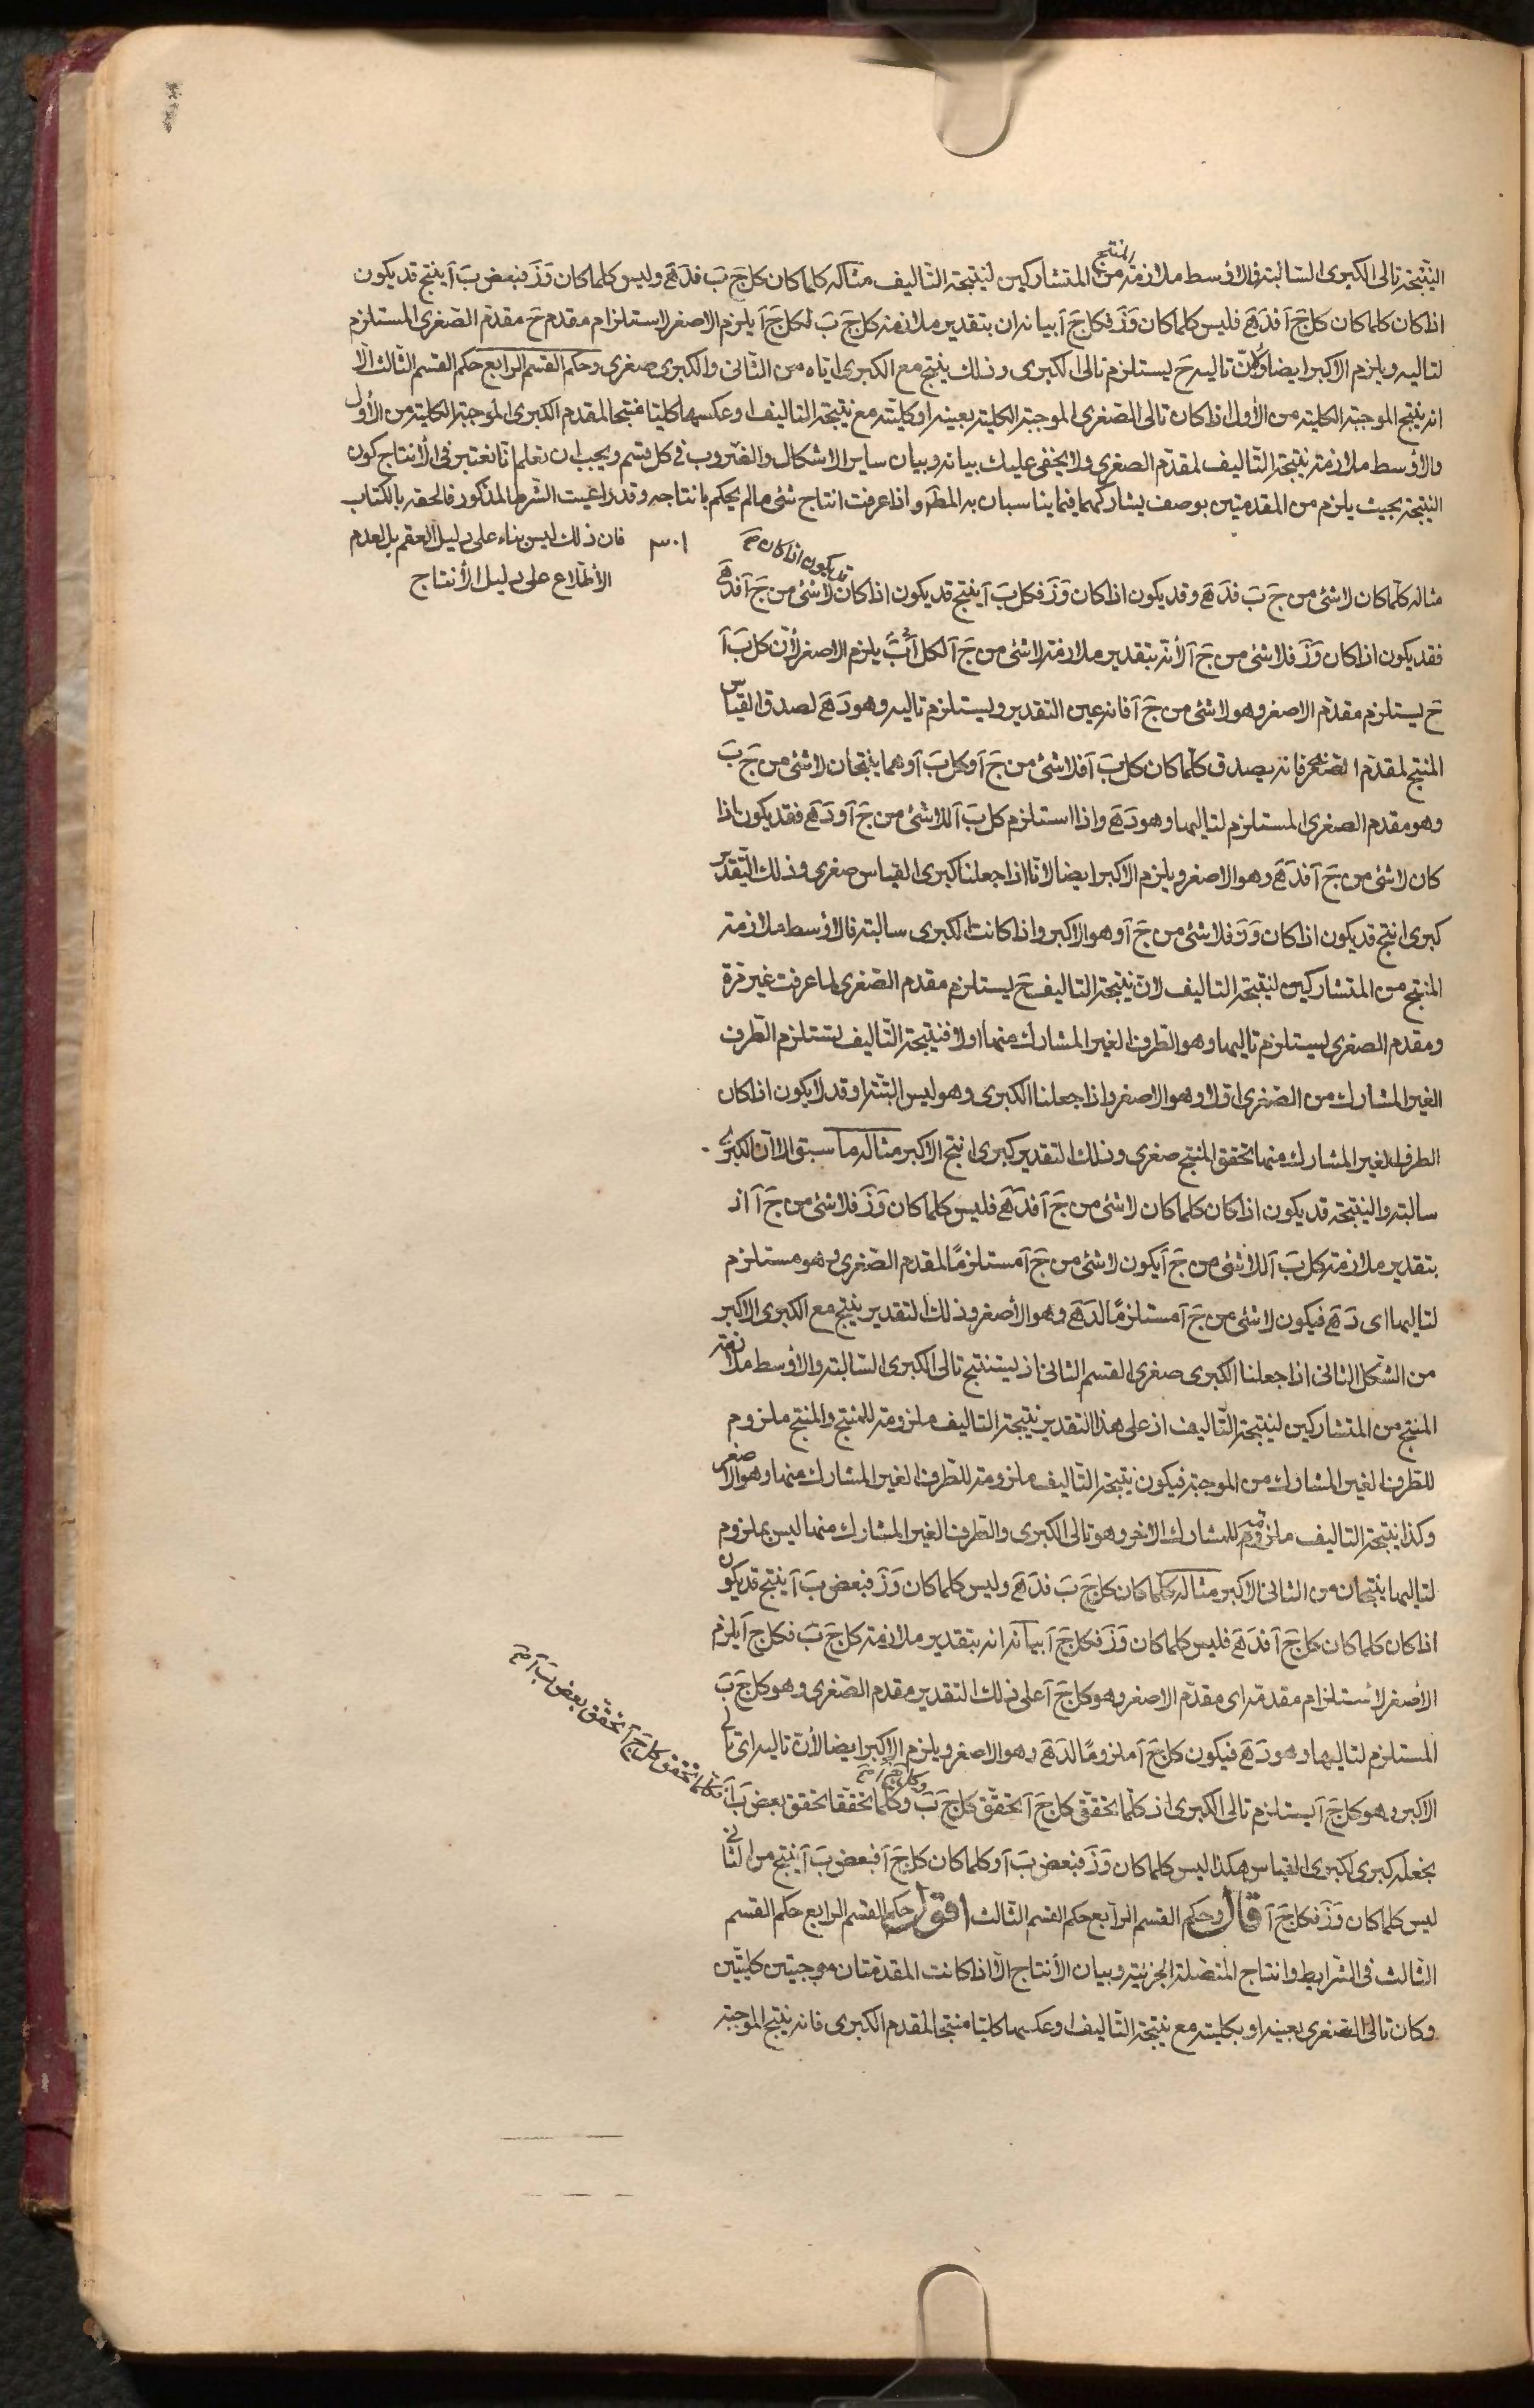 النتيجة تالى الكبرى السالبة فالاوسط ملازمة المنتج من المتشاركين لنتيجة التاليف مثاله كلما كان كل جَ بَ فدَ هَ وليس كلما كان وَ زَ فبعض بَ آ ينتج قد يكون
اذا كان كلما كان كل جَ آ فدَ هَ فليس كلما كان وَ زَ فكل جَ آ بيانه ان بتقدير ملازمة كل جَ بَ لكل جَ آ يلزم الاصغر لاستلزام مقدم حَ مقدم الصغرى المستلزم
لتاليه ويلزم الاكبر ايضا لان تاليه حَ يستلزم تالى الكبرى وذلك ينتج مع الكبرى اياه من الثانى والكبرى صغرى وحكم القسم الرابع حكم القسم الثالث الا
انه ينتج الموجبة الكلية من الاول اذا كان تالى الصغرى الموجبة الكلية بعينه او كليته مع نتيجة التاليف او عكسها كليا منتجا لمقدم الكبرى الموجبة الكلية من الاول
والاوسط ملازمة نتيجة التاليف لمقدم الصغرى ولا يخفى عليك بيانه وبيان ساير الاشكال والضروب فى كل قسم ويجب ان تعلم انا نعتبر فى الانتاج كون
النتيجة بحيث يلزم من المقدمتين بوصف يشاركهما فيما يناسبان به المط واذا عرفت انتاج شئ مالم يحكم بانتاجه وقد راعيت الشرط المذكور فالحقه بالكتاب
فان ذلك ليس بناء على دليل العقم بل لعدم
الاطلاع على دليل الانتاج
٣٠١
قد يكون اذا كان صح
مثاله كلما كان لا شئ من جَ بَ فدَ هَ وقد يكون اذا كان وَ زَ فكل بَ آ ينتج قد يكون اذا كان لا شئ من جَ آ فدَ هَ
فقد يكون اذا كان وَ زَ فلا شئ من جَ آ لانه بتقدير ملازمة لا شئ من جَ آ لكل بَ آ يلزم الاصغر لان كل بَ آ
حَ يستلزم مقدم الاصغر وهو لا شئ من جَ آ فانه عين التقدير ويستلزم تاليه وهو دَ هَ لصدق القياس
المنتج لمقدم الصغرى فانه يصدق كلما كان كل بَ آ فلا شئ من جَ آ وكل بَ آ وهما ينتجان لا شئ من جَ بَ
وهو مقدم الصغرى المستلزم لتاليها وهو دَ هَ واذا استلزم كل بَ آ للا شئ من جَ آ ودَ هَ فقد يكون اذا
كان لا شئ من جَ آ فدَ هَ وهو الاصغر ويلزم الاكبر ايضا لانا اذا جعلنا كبرى القياس صغرى وذلك التقدير
كبرى انتج قد يكون اذا كان وَ زَ فلا شئ من جَ آ وهو الاكبر واذا كانت الكبرى سالبة فالاوسط ملازمة
المنتج من المتشاركين لنتيجة التاليف لان نتيجة التاليف حَ يستلزم مقدم الصغرى لما عرفت غير مرة
ومقدم الصغرى يستلزم تاليها وهو الطرف الغير المشارك منها اولا فنتيجة التاليف يستلزم الطرف
الغير المشارك من الصغرى اولا وهو الاصغر واذا جعلنا الكبرى وهو ليس البتة او قد لا يكون اذا كان
الطرف الغير المشارك منها تحقق المنتج صغرى وذلك التقدير كبرى انتج الاكبر مثاله ما سبق الا ان الكبرى
سالبة والنتيجة قد يكون اذا كان كلما كان لا شئ من جَ آ فدَ هَ فليس كلما كان وَ زَ فلا شئ من جَ آ اذ
بتقدير ملازمة كل بَ آ للا شئ من جَ آ يكون لا شئ من جَ آ مستلزمًا لمقدم الصغرى وهو مستلزم
لتاليها اى دَ هَ فيكون لا شئ من جَ آ مستلزمًا لدَ هَ وهو الاصغر وذلك التقدير ينتج مع الكبرى الاكبر
من الشكل الثانى اذا جعلنا الكبرى صغرى القسم الثانى اذ يستنتج تالى الكبرى السالبة والاوسط ملازمة
المنتج من المتشاركين لنتيجة التاليف اذ على هذا التقدير نتيجة التاليف ملزومة للمنتج والمنتج ملزوم
للطرف الغير المشارك من الموجبة فيكون نتيجة التاليف ملزومة للطرف الغير المشارك منها وهو الاصغر
وكذا نتيجة التاليف ملزومة للمشارك الاخر وهو تالى الكبرى والطرف الغير المشارك منها ليس بملزوم
لتاليها ينتجان من الثانى الاكبر مثاله كلما كان كل جَ بَ فدَ هَ وليس كلما كان وَ زَ فبعض بَ آ ينتج قد يكون
اذا كان كلما كان كل جَ آ فدَ هَ فليس كلما كان وَ زَ فكل جَ آ بيانه انه بتقدير ملازمة كل جَ بَ فكل جَ آ يلزم
الاصغر لاستلزام مقدمه اى مقدم الاصغر وهو كل جَ آ على ذلك التقدير مقدم الصغرى وهو كل جَ بَ
المستلزم لتاليها وهو دَ هَ فيكون كل جَ آ ملزومًا لدَ هَ وهو الاصغر ويلزم الاكبر ايضا لان تاليه اى تالى
الاكبر وهو كل جَ آ يستلزم تالى الكبرى اذ كلما تحقق كل جَ آ تحقق كل جَ بَ وكل جَ آ صح وكلما تحققا تحقق بعض بَ آ
فكلما تحقق كل جَ آ تحقق بعض بَ آ صح
نجعله كبرى لكبرى القياس هكذا ليس كلما كان وَ زَ فبعض بَ آ وكلما كان كل جَ آ فبعض بَ آ ينتج من الثانى
ليس كلما كان وَ زَ فكل جَ آ قال وحكم القسم الرابع حكم القسم الثالث اقول حكم القسم الرابع حكم القسم
الثالث فى الشرايط وانتاج المتصلة الجزئية وبيان الانتاج الا اذا كانت المقدمتان موجبتين كليتين
وكان تالى الصغرى بعينه او بكليته مع نتيجة التاليف او عكسها كليا منتجا لمقدم الكبرى فانه ينتج الموجبة